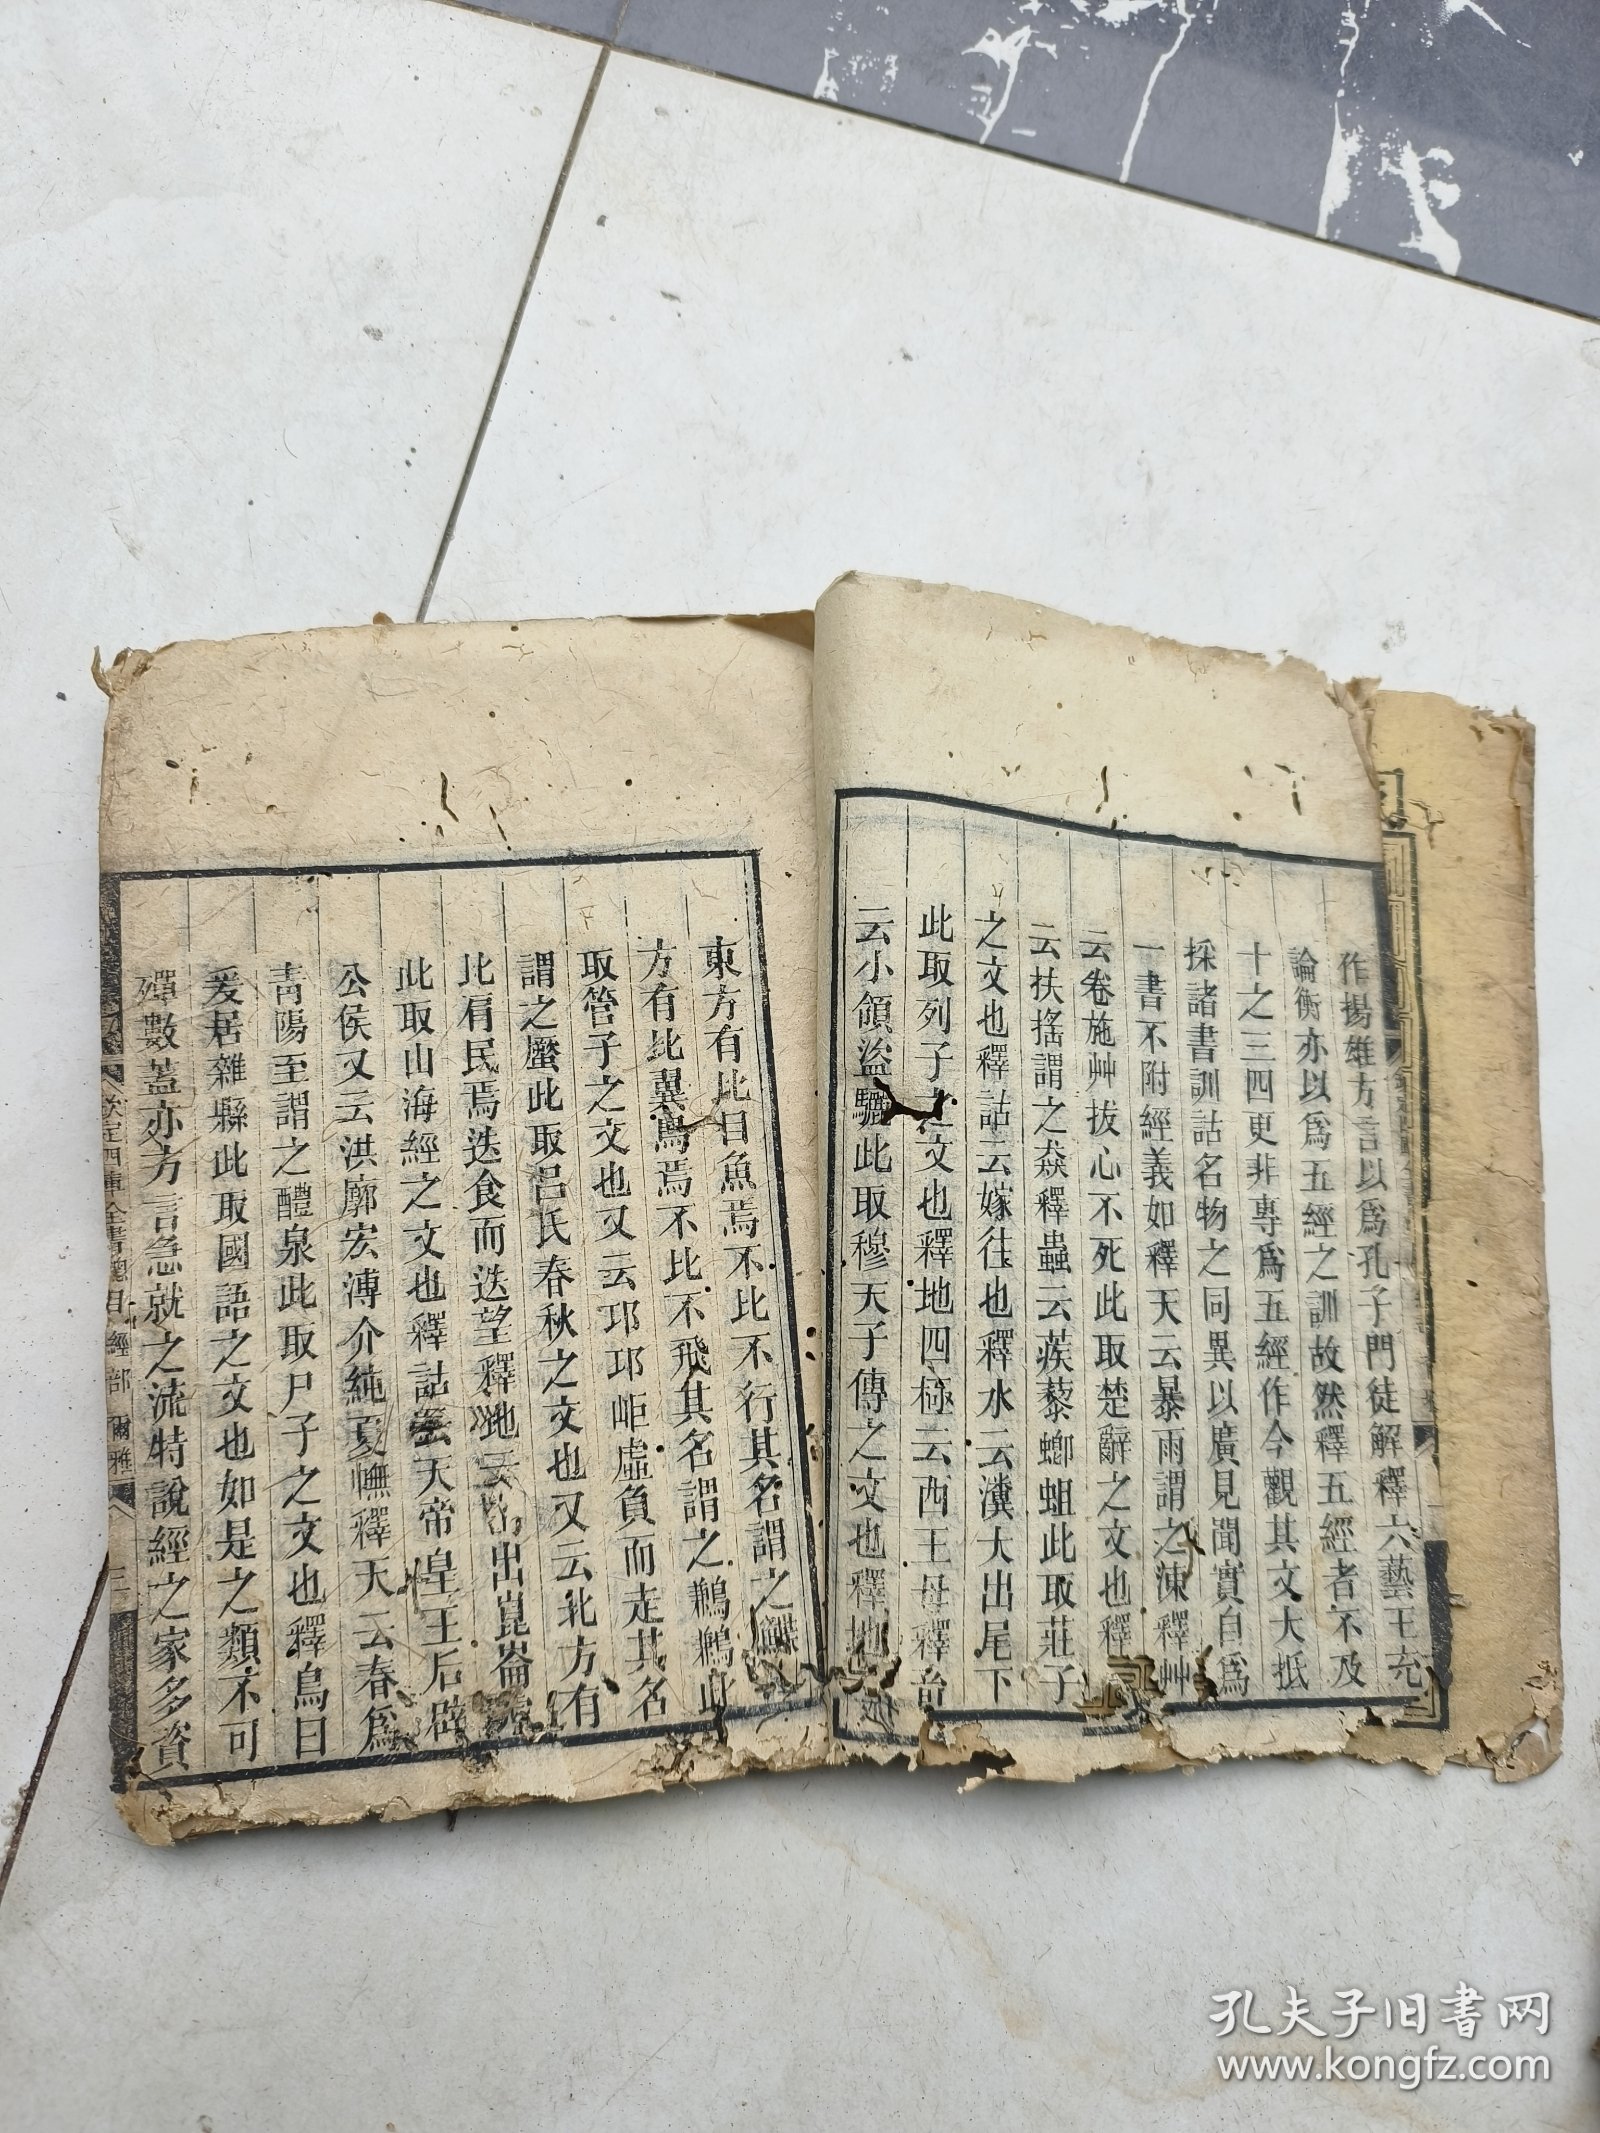 作揚雄方言以爲孔子門徒解釋六藝王充
論衡亦以爲五經之訓故然釋五經者不及
十之三四更非專爲五經作今觀其文大抵
採諸書訓詁名物之同異以廣見聞實自爲
一書不附經義如釋天云暴雨謂之涷釋艸
云卷施艸拔心不死此取楚辭之文也釋
云扶搖謂之猋釋蟲云蒺藜蝍蛆此取莊子
之文也釋詁云嫁往也釋水云瀵大出尾下
此取列子之文也釋地四極云西王母釋畜
云小領盜驪此取穆天子傳之文也釋地
東方有比目魚焉不比不行其名謂之鰈
方有比翼鳥焉不比不飛其名謂之鶼鶼此
取管子之文也又云邛邛岠虛負而走其名
謂之蟨此取呂氏春秋之文也又云北方有
比肩民焉迭食而迭望釋地云出崑崙
此取山海經之文也釋詁云天帝皇王后辟
公侯又云洪廓宏溥介純夏幠釋天云春爲
靑陽至謂之醴泉此取尸子之文也釋鳥曰
爰居雜縣此取國語之文也如是之類不可
殫數蓋亦方言急就之流特說經之家多資
欽定四庫全書總目 經部 爾雅 二
孔夫子旧书网
www.kongfz.com